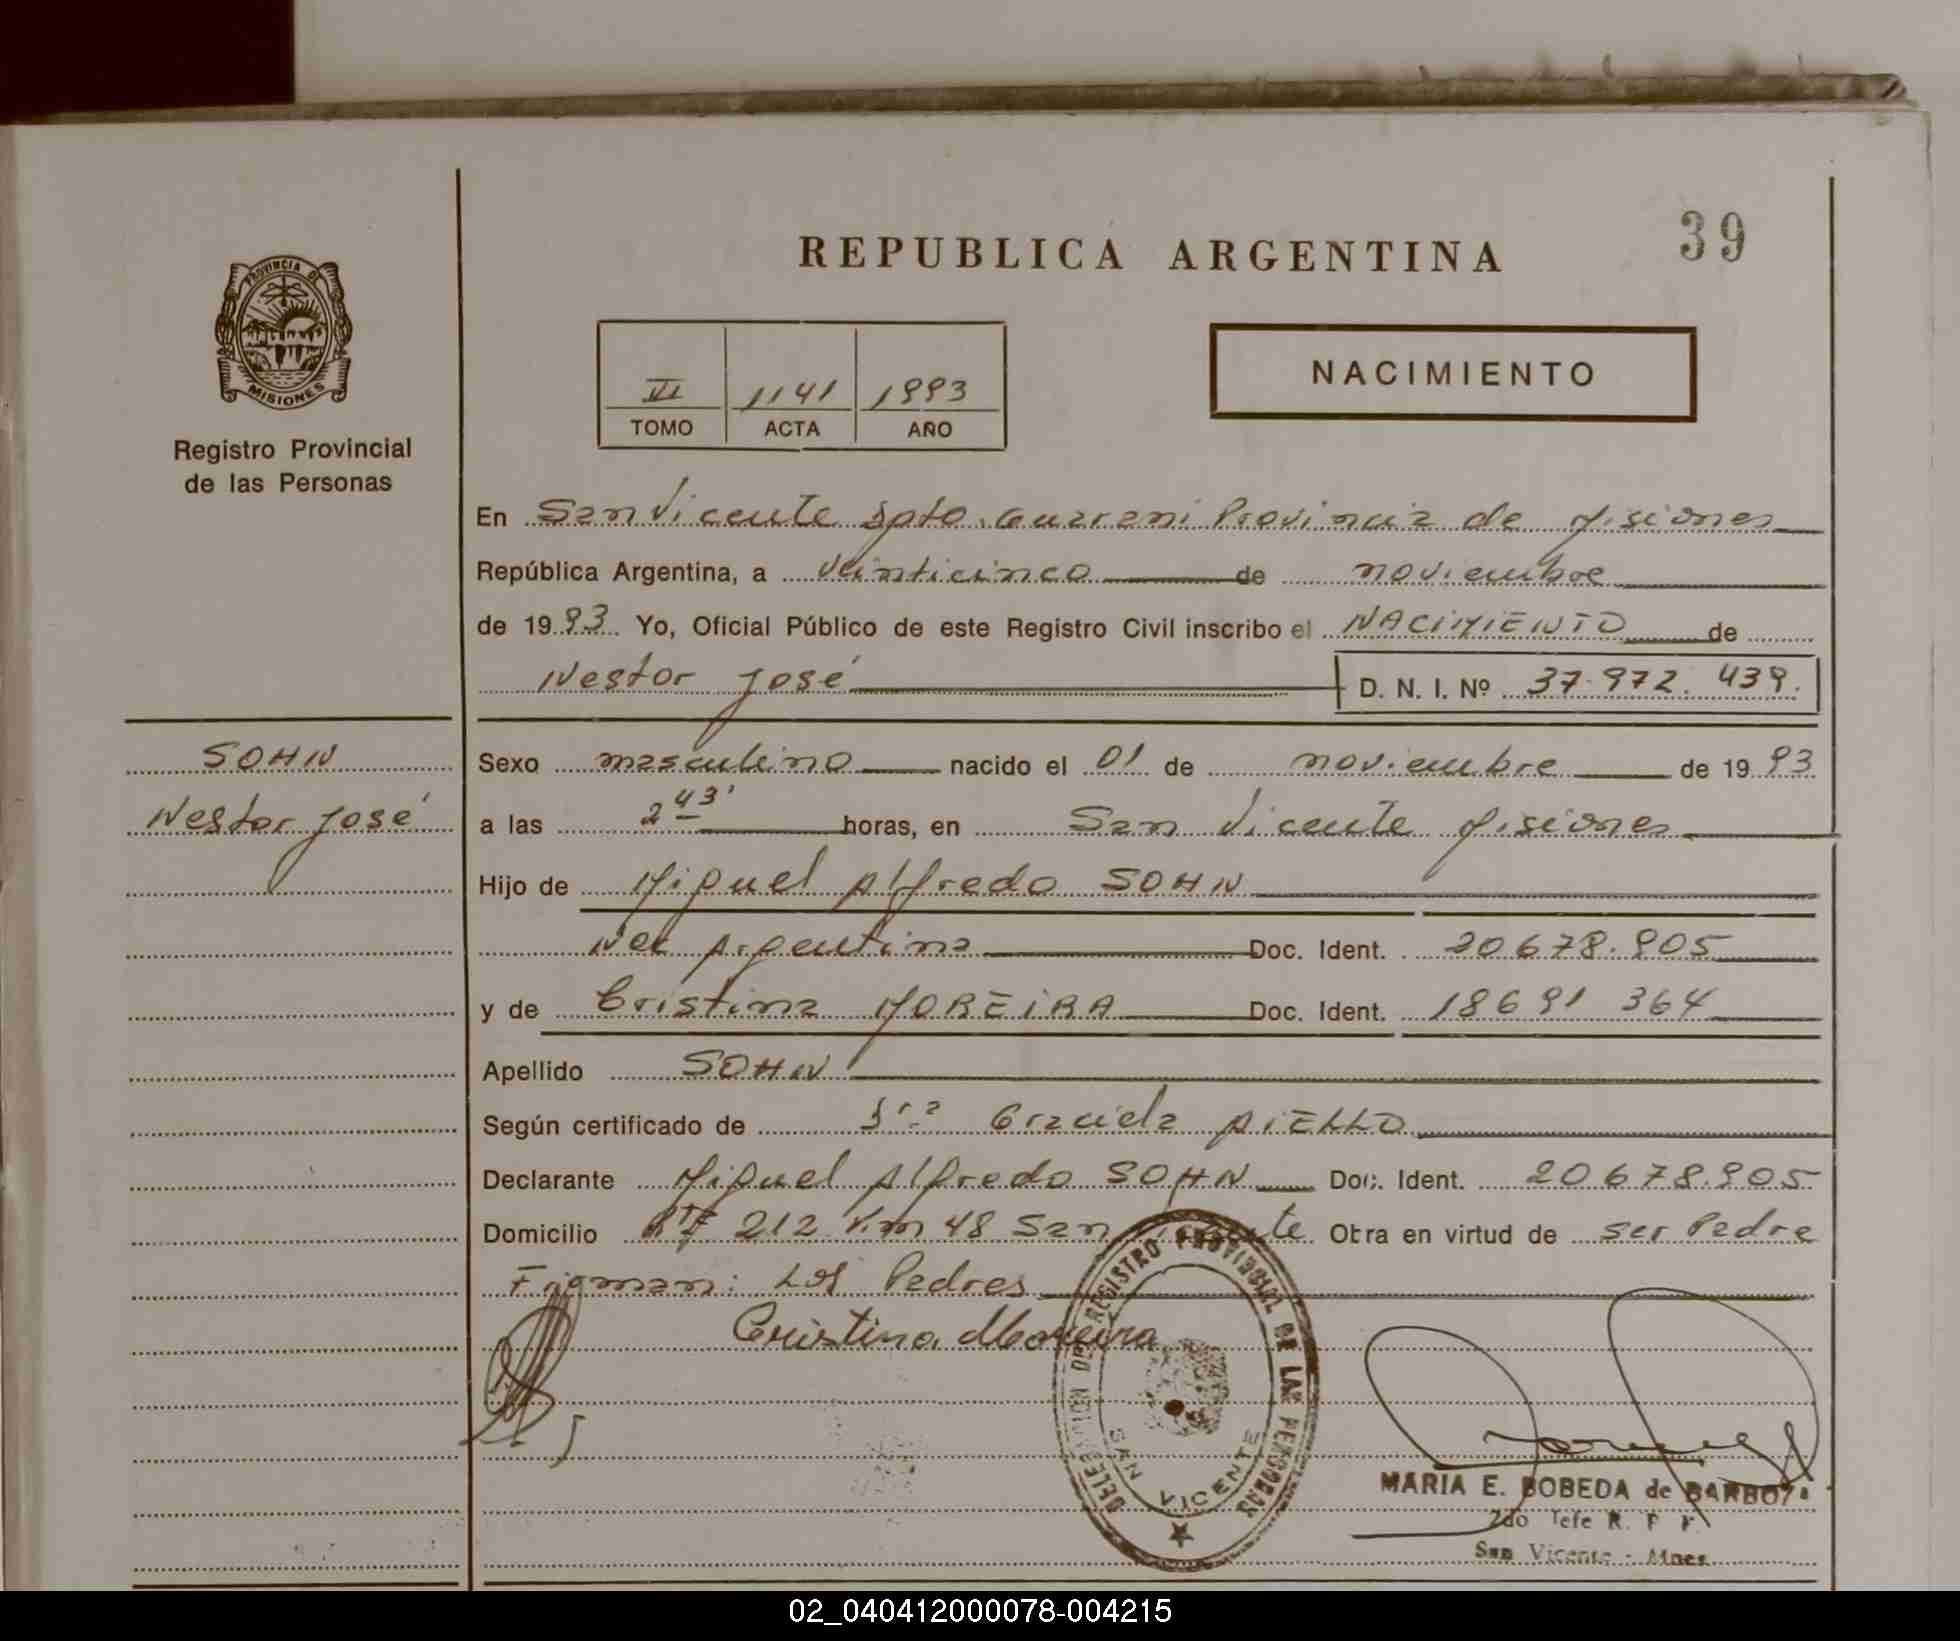 39
REPUBLICA ARGENTINA
PROVINCIA DE
MISIONES
Registro Provincial
de las Personas
VI 1141 1993
TOMO ACTA AÑO
NACIMIENTO
En San Vicente Dpto. Guarani Provincia de Misiones
República Argentina, a veinticinco de noviembre
de 1993 Yo, Oficial Público de este Registro Civil inscribo el NACIMIENTO de
Nestor José D. N. I. Nº 37.972.439.
SOHN
Nestor José
Sexo masculino nacido el 01 de noviembre de 1993
a las 2 43' horas, en San Vicente Misiones
Hijo de Miguel Alfredo SOHN
Nac Argentina Doc. Ident. 20678.905
y de Cristina MOREIRA Doc. Ident. 18691 364
Apellido SOHN
Según certificado de Dra Graciela AIELLO
Declarante Miguel Alfredo SOHN Doc. Ident. 20678.905
Domicilio RTE 212 Km 48 San Vicente Obra en virtud de ser Padre
Firman: Los Padres
Cristina Moreira
DELEGACION DEL REGISTRO PROVINCIAL DE LAS PERSONAS
SAN VICENTE
MARIA E. BOBEDA de
2do Jefe R. P. P.
San Vicente - Mnes.
02_040412000078-004215